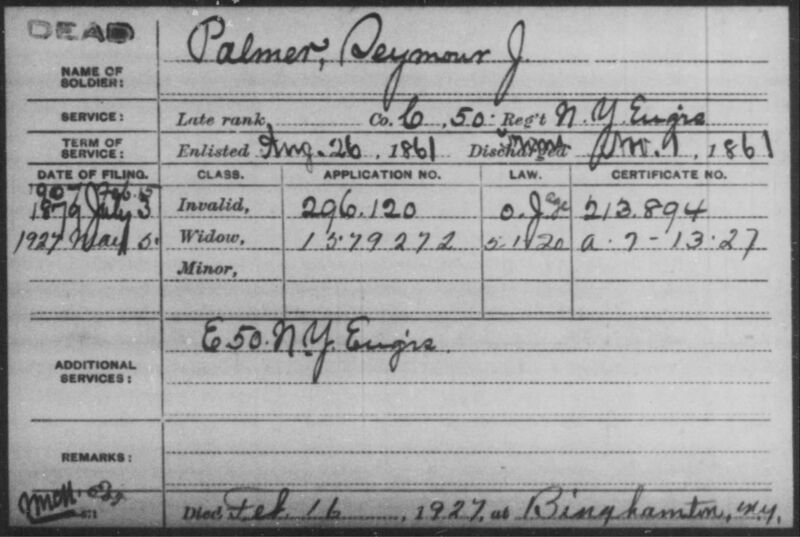 DEAD
NAME OF SOLDIER: Palmer, Seymour J
SERVICE: Late rank, Co. C, 50 Reg't N. Y. Eng'rs
TERM OF SERVICE: Enlisted Aug. 26, 1861 Discharged 1, 1861
DATE OF FILING. CLASS. APPLICATION NO. LAW. CERTIFICATE NO.
1907 Feb. 5
1879 July 3 Invalid, 296.120 213.894
1927 Mar 5 Widow, 1579272 5-1-20 a. 7-13-27
Minor,
ADDITIONAL SERVICES: E 50. N.Y. Eng'rs.
REMARKS:
Died Feb. 16, 1927, at Binghamton, N.Y.